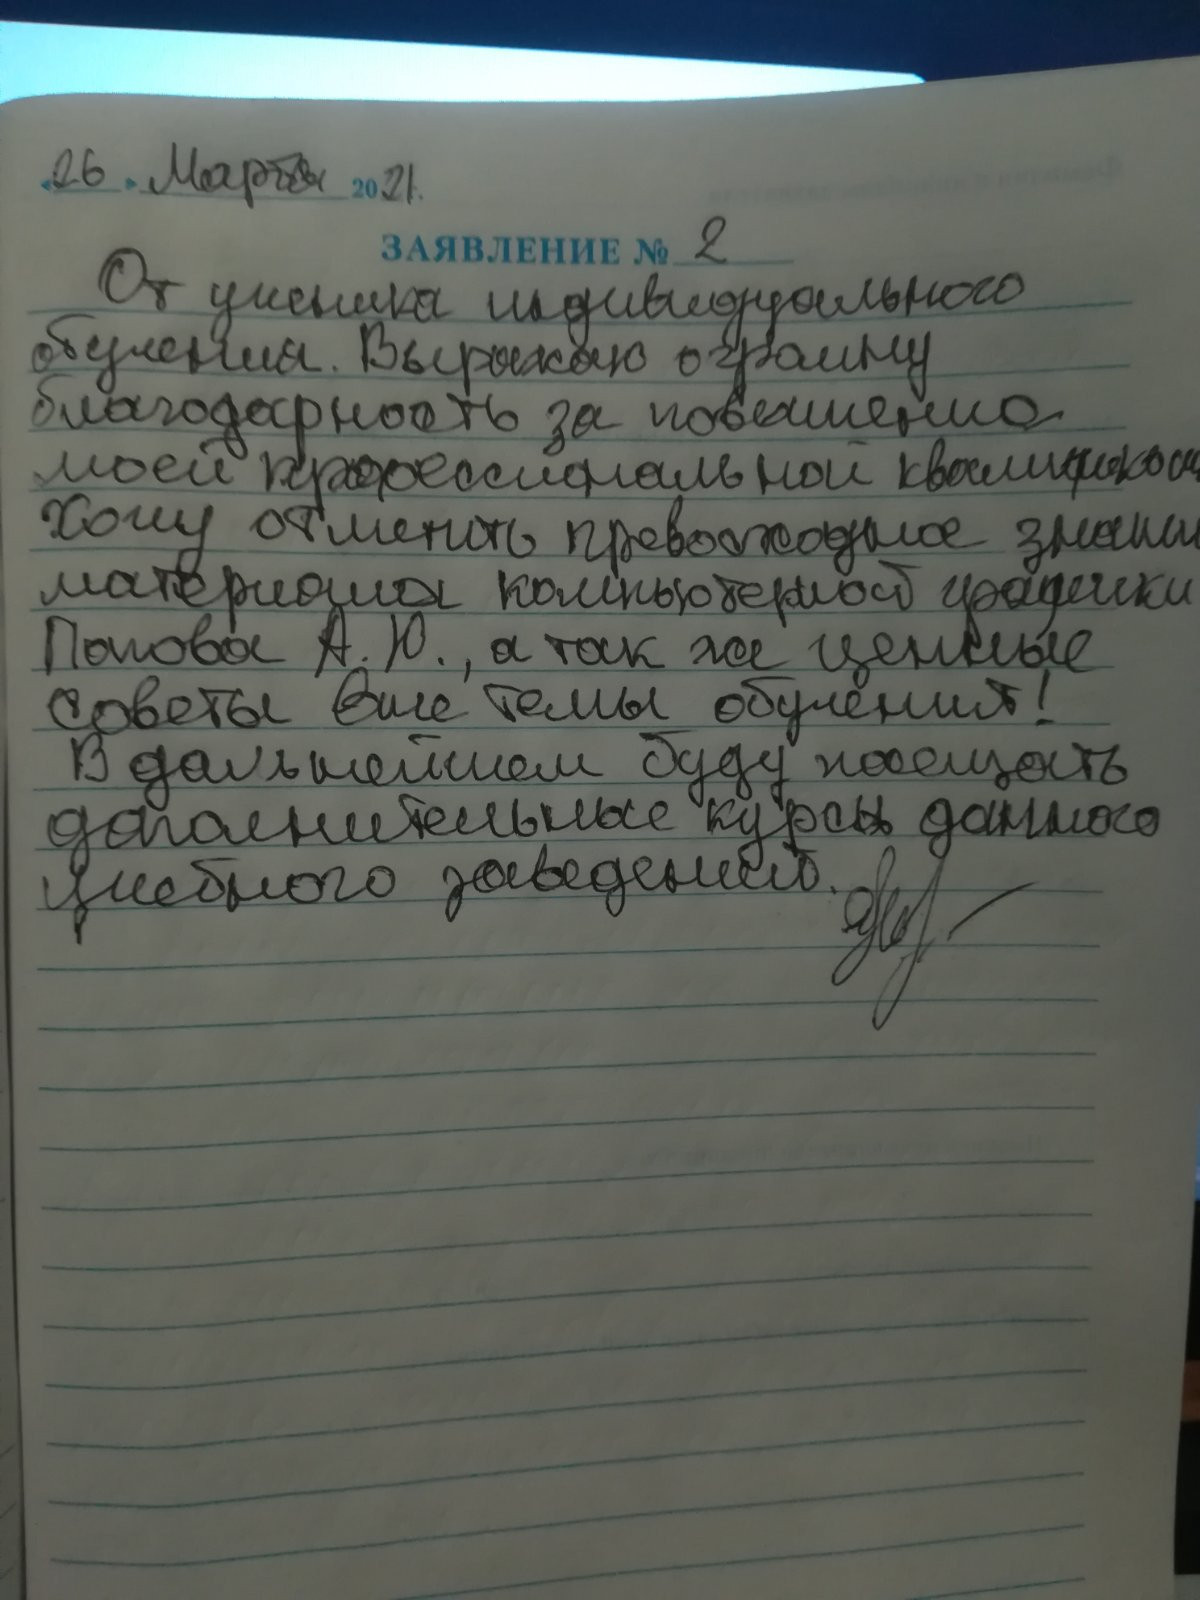 «26» Марта 2021.
ЗАЯВЛЕНИЕ № 2
От ученика индивидуального
обучения. Выражаю огромну
благодарность за повышению
моей профессиональной квалификаци
Хочу отметить превосходное знани
материала компьютерной графики
Попова А.Ю., а так же ценные
советы вне темы обучения!
В дальнейшем буду посещать
дополнительные курсы данного
учебного заведения.